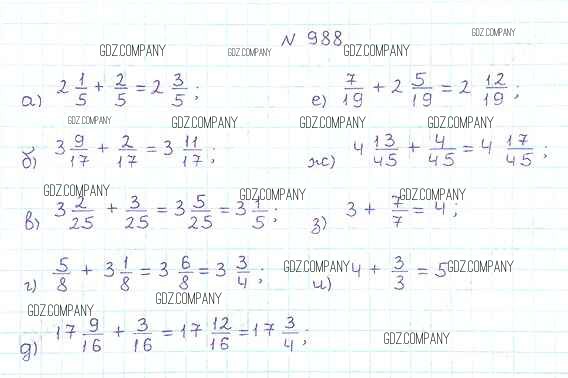 № 988
GDZ.COMPANY
GDZ.COMPANY GDZ.COMPANY GDZ.COMPANY
а) 2 1/5 + 2/5 = 2 3/5; е) 7/19 + 2 5/19 = 2 12/19;
GDZ.COMPANY GDZ.COMPANY GDZ.COMPANY GDZ.COMPANY
б) 3 9/17 + 2/17 = 3 11/17; ж) 4 13/45 + 4/45 = 4 17/45;
GDZ.COMPANY GDZ.COMPANY GDZ.COMPANY
в) 3 2/25 + 3/25 = 3 5/25 = 3 1/5; з) 3 + 7/7 = 4;
г) 5/8 + 3 1/8 = 3 6/8 = 3 3/4; GDZ.COMPANY и) 4 + 3/3 = 5 GDZ.COMPANY
GDZ.COMPANY GDZ.COMPANY
д) 17 9/16 + 3/16 = 17 12/16 = 17 3/4; GDZ.COMPANY